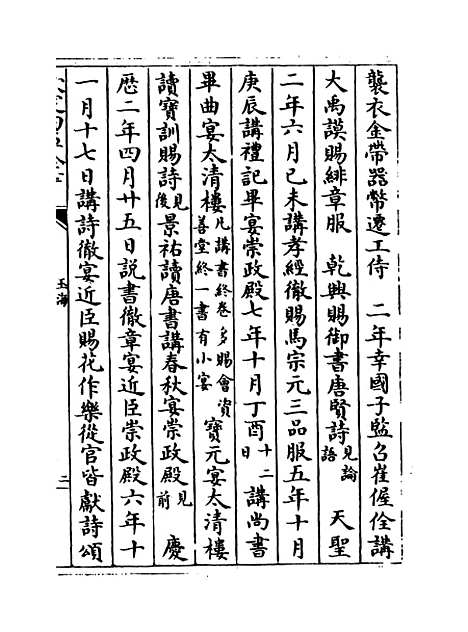 襲衣金帶器幣遷工侍　二年幸國子監召崔偓佺講
大禹謨賜緋章服　乾興賜御書唐賢詩見論語　天聖
二年六月已未講孝經徹賜馬宗元三品服五年十月
庚辰講禮記畢宴崇政殿七年十月丁酉十二日講尚書
畢曲宴太清樓凡講書終卷多賜會資善堂終一書有小宴　寶元宴太清樓
讀寶訓賜詩見後景祐讀唐書講春秋宴崇政殿見前　慶
歴二年四月廿五日説書徹章宴近臣崇政殿六年十
一月十七日講詩徹宴近臣賜花作樂從官皆獻詩頌
玉海
三